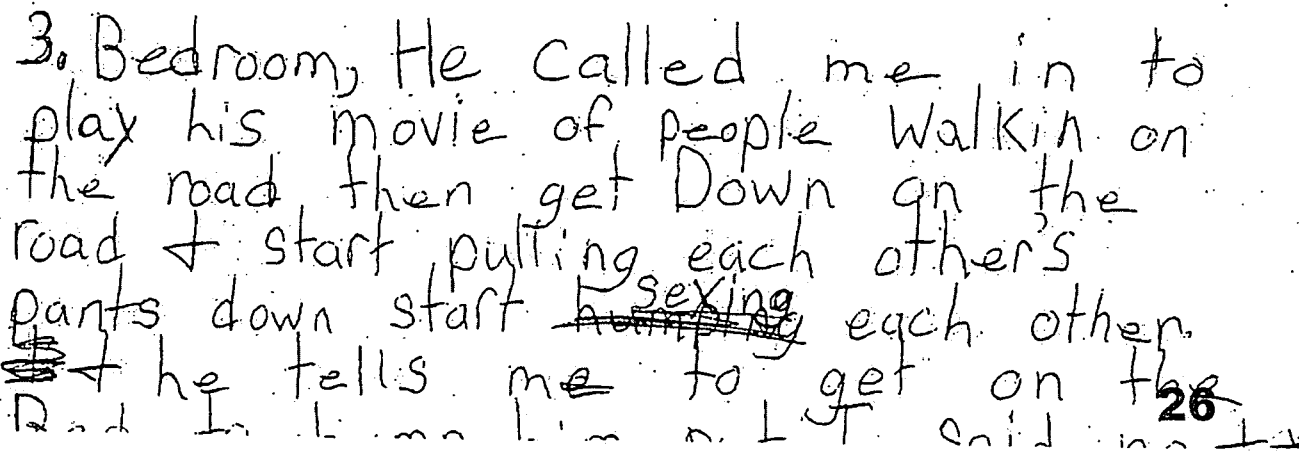 3. Bedroom, He called me in to
play his movie of people Walkin on
the road then get Down on the
road & start pulling each other's
pants down start sexing each other.
& he tells me to get on the
26